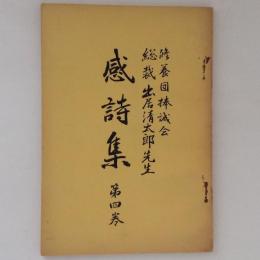 修養団捧誠会
総裁 出居清太郎先生
感詩集
第四巻